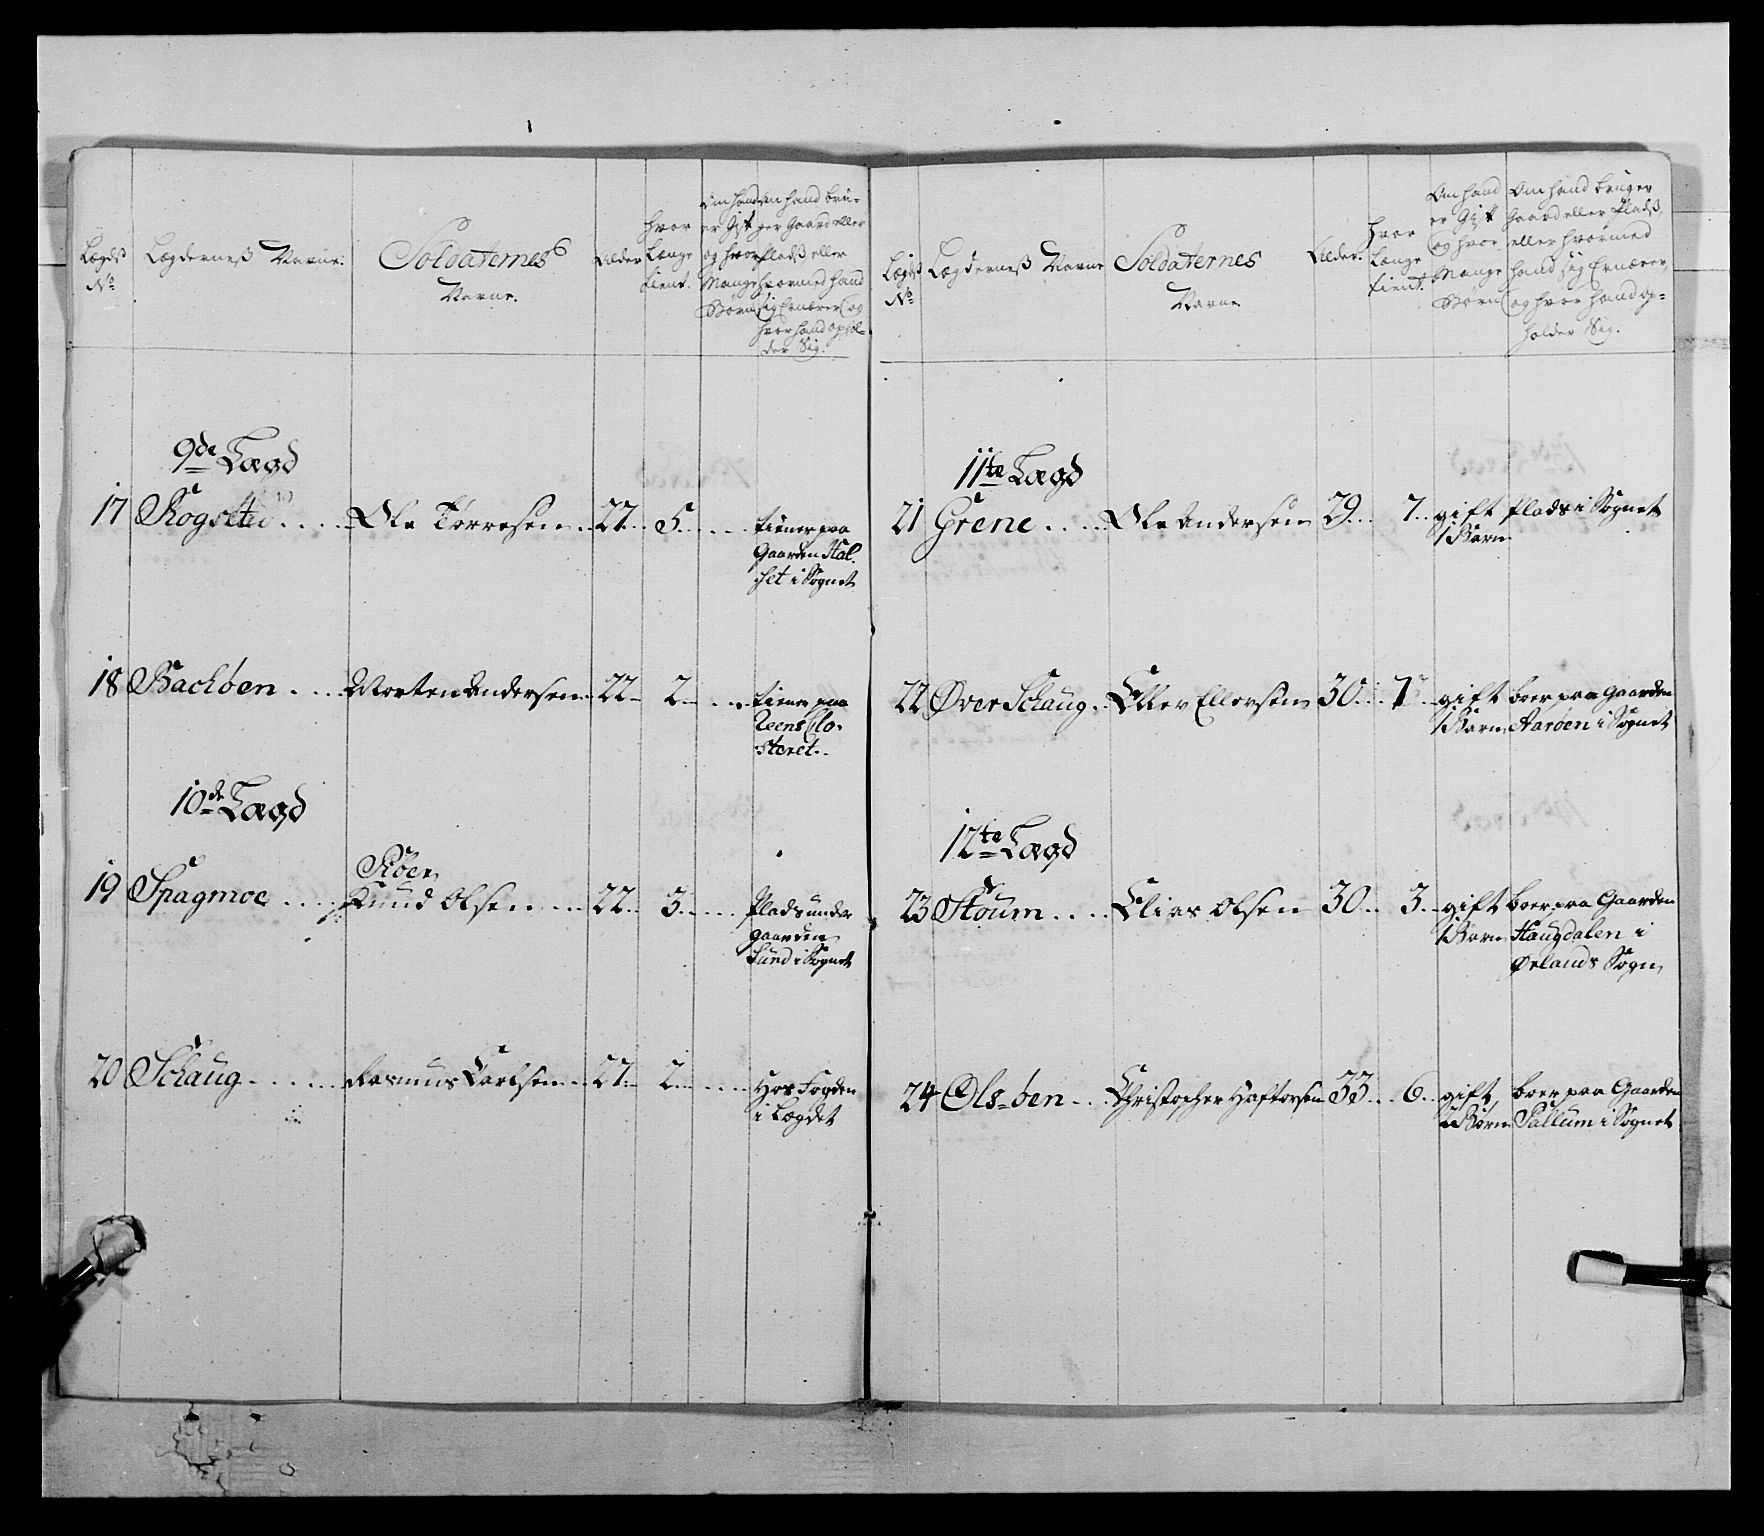 Lægds
No
Lægdernes Navne:
Soldaternes
Navne.
Alder
hvor
Længe
tient.
Om hand
er Gift
og hvor
Mange
Børn
Om hand bru-
ger Gaard eller
Plads eller
hvormed hand
sig Ernærer og
hvor hand ophol-
der Sig.
9de Lægd
17 Rogstad Ole Tørresen 22 5 tiener paa
Gaarden Hal
set i Sognet
18 Bachøen Morten Andersen 22 2 tiener paa
Reens Clo-
steret.
10de Lægd
Siøer
19 Spagmoe Knud Olsen 22 3 Plads under
gaarden
Sund i Sognet
20 Schaug Rasmus Carlsen 27 2 Hos Fogden
i Lægdet
Lægds
No
Lægdernes Navne
Soldaternes
Navne
Alder.
hvor
Længe
tient.
Om hand
er Gift
og hvor
Mange
Børn
Om hand bruger
Gaard eller Plads,
eller hvormed
hand sig Ernærer,
og hvor hand op-
holder Sig.
11te Lægd
21 Grene Ole Andersen 29 7 gift Plads i Sognet
1 Barn
22 Øver Schaug Eller Ellevsen 30 7 gift boer paa Gaarden
1 Barn Aarøen i Sognet
12te Lægd
23 Houm Elias Olsen 30 3 gift boer paa Gaarden
1 Barn Haugdalen i
Ørlands Sogn
24 Ols-øen Christopher Haftorsen 33 6 gift, boer paa Gaarden
2 Børn Sallum i Sognet